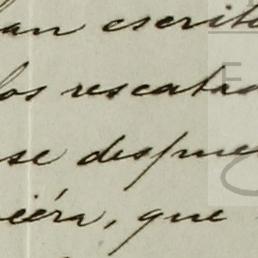 an escrito
los rescatas
se despue
iéra, que